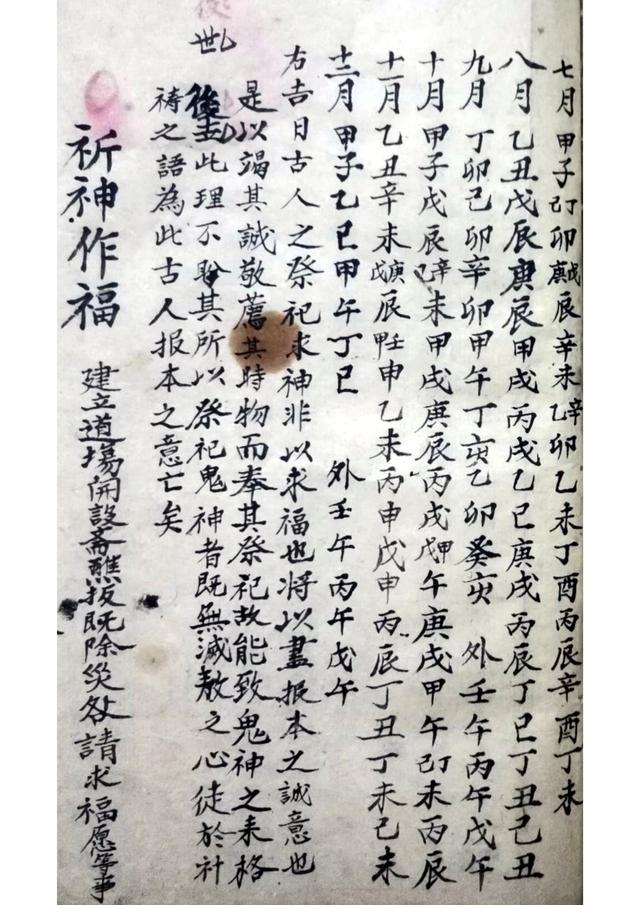 七月 甲子己丁卯庚戊辰辛未乙辛卯乙未丁酉丙辰辛酉丁未
八月 乙丑戊辰庚辰甲戌丙戌乙巳庚戌丙辰丁巳丁丑己丑
九月 丁卯己卯辛卯甲午丁亥乙卯癸亥 外壬午丙午戊午
十月 甲子戊辰辛未甲戌庚辰丙戌甲午庚戌甲午己未丙辰
十一月 乙丑辛未戊庚辰甲壬申乙未丙申戊申丙辰丁丑丁未己未
十二月 甲子乙巳甲午丁巳 外壬午丙午戊午
右吉日古人之祭祀求神非以求福也将以盡报本之誠意也
是以竭其誠敬薦其時物而奉其祭祀故能致鬼神之来格
世
後此理不其所以祭祀鬼神者既無誠敖之心徒於
祷之語為此古人报本之意亡矣
祈神作福 建立道場開設斋醮扳既除災各請求福愿等事